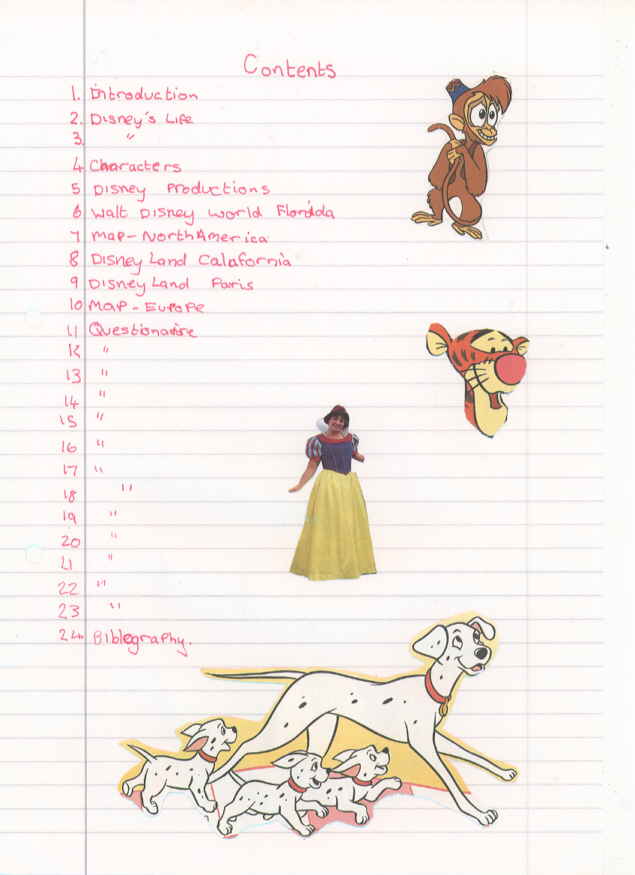 Contents
1. Introduction
2. Disney's Life
3. "
4 Characters
5 Disney Productions
6 Walt Disney World Floridda
7 Map - North America
8 Disney Land Calafornia
9 Disney Land Paris
10 Map - Europe
11 Questionaire
12 "
13 "
14 "
15 "
16 "
17 "
18 "
19 "
20 "
21 "
22 "
23 "
24 Biblegraphy.